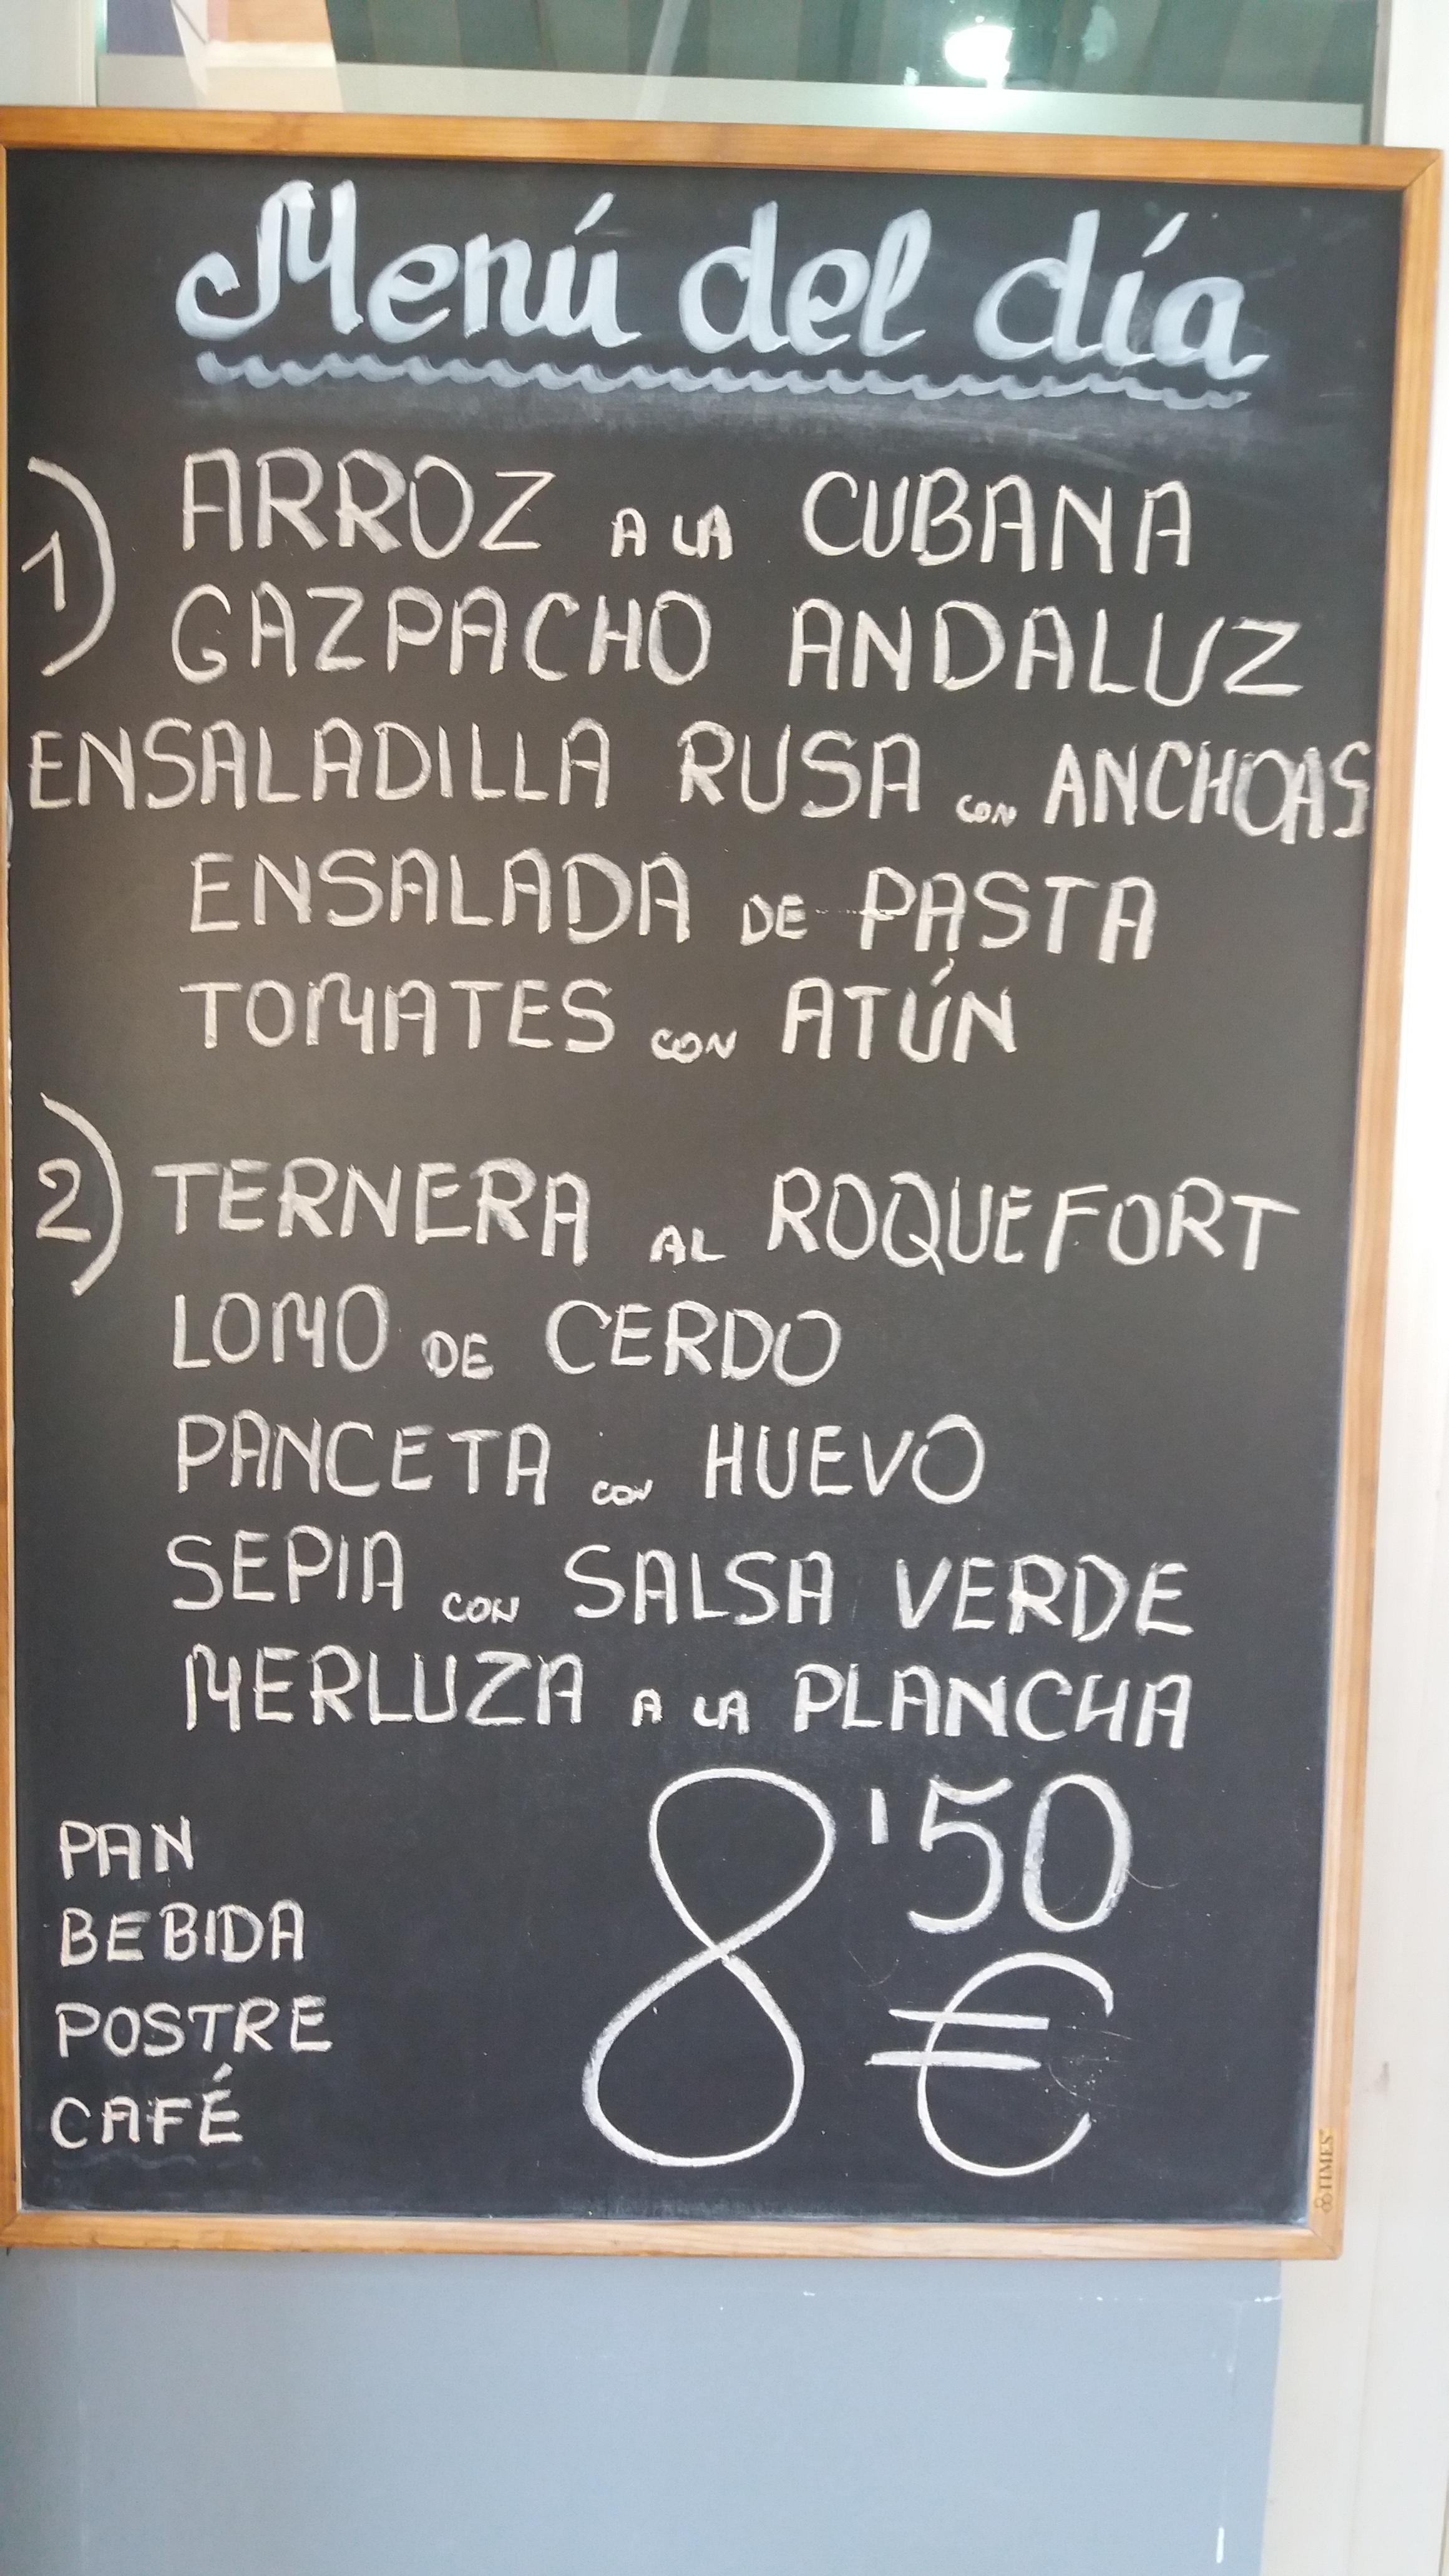 Menú del día
1) ARROZ A LA CUBANA
GAZPACHO ANDALUZ
ENSALADILLA RUSA CON ANCHOAS
ENSALADA DE PASTA
TOMATES CON ATÚN
2) TERNERA AL ROQUEFORT
LOMO DE CERDO
PANCETA CON HUEVO
SEPIA CON SALSA VERDE
MERLUZA A LA PLANCHA
PAN
BEBIDA
POSTRE
CAFÉ
8'50
€
TIMES